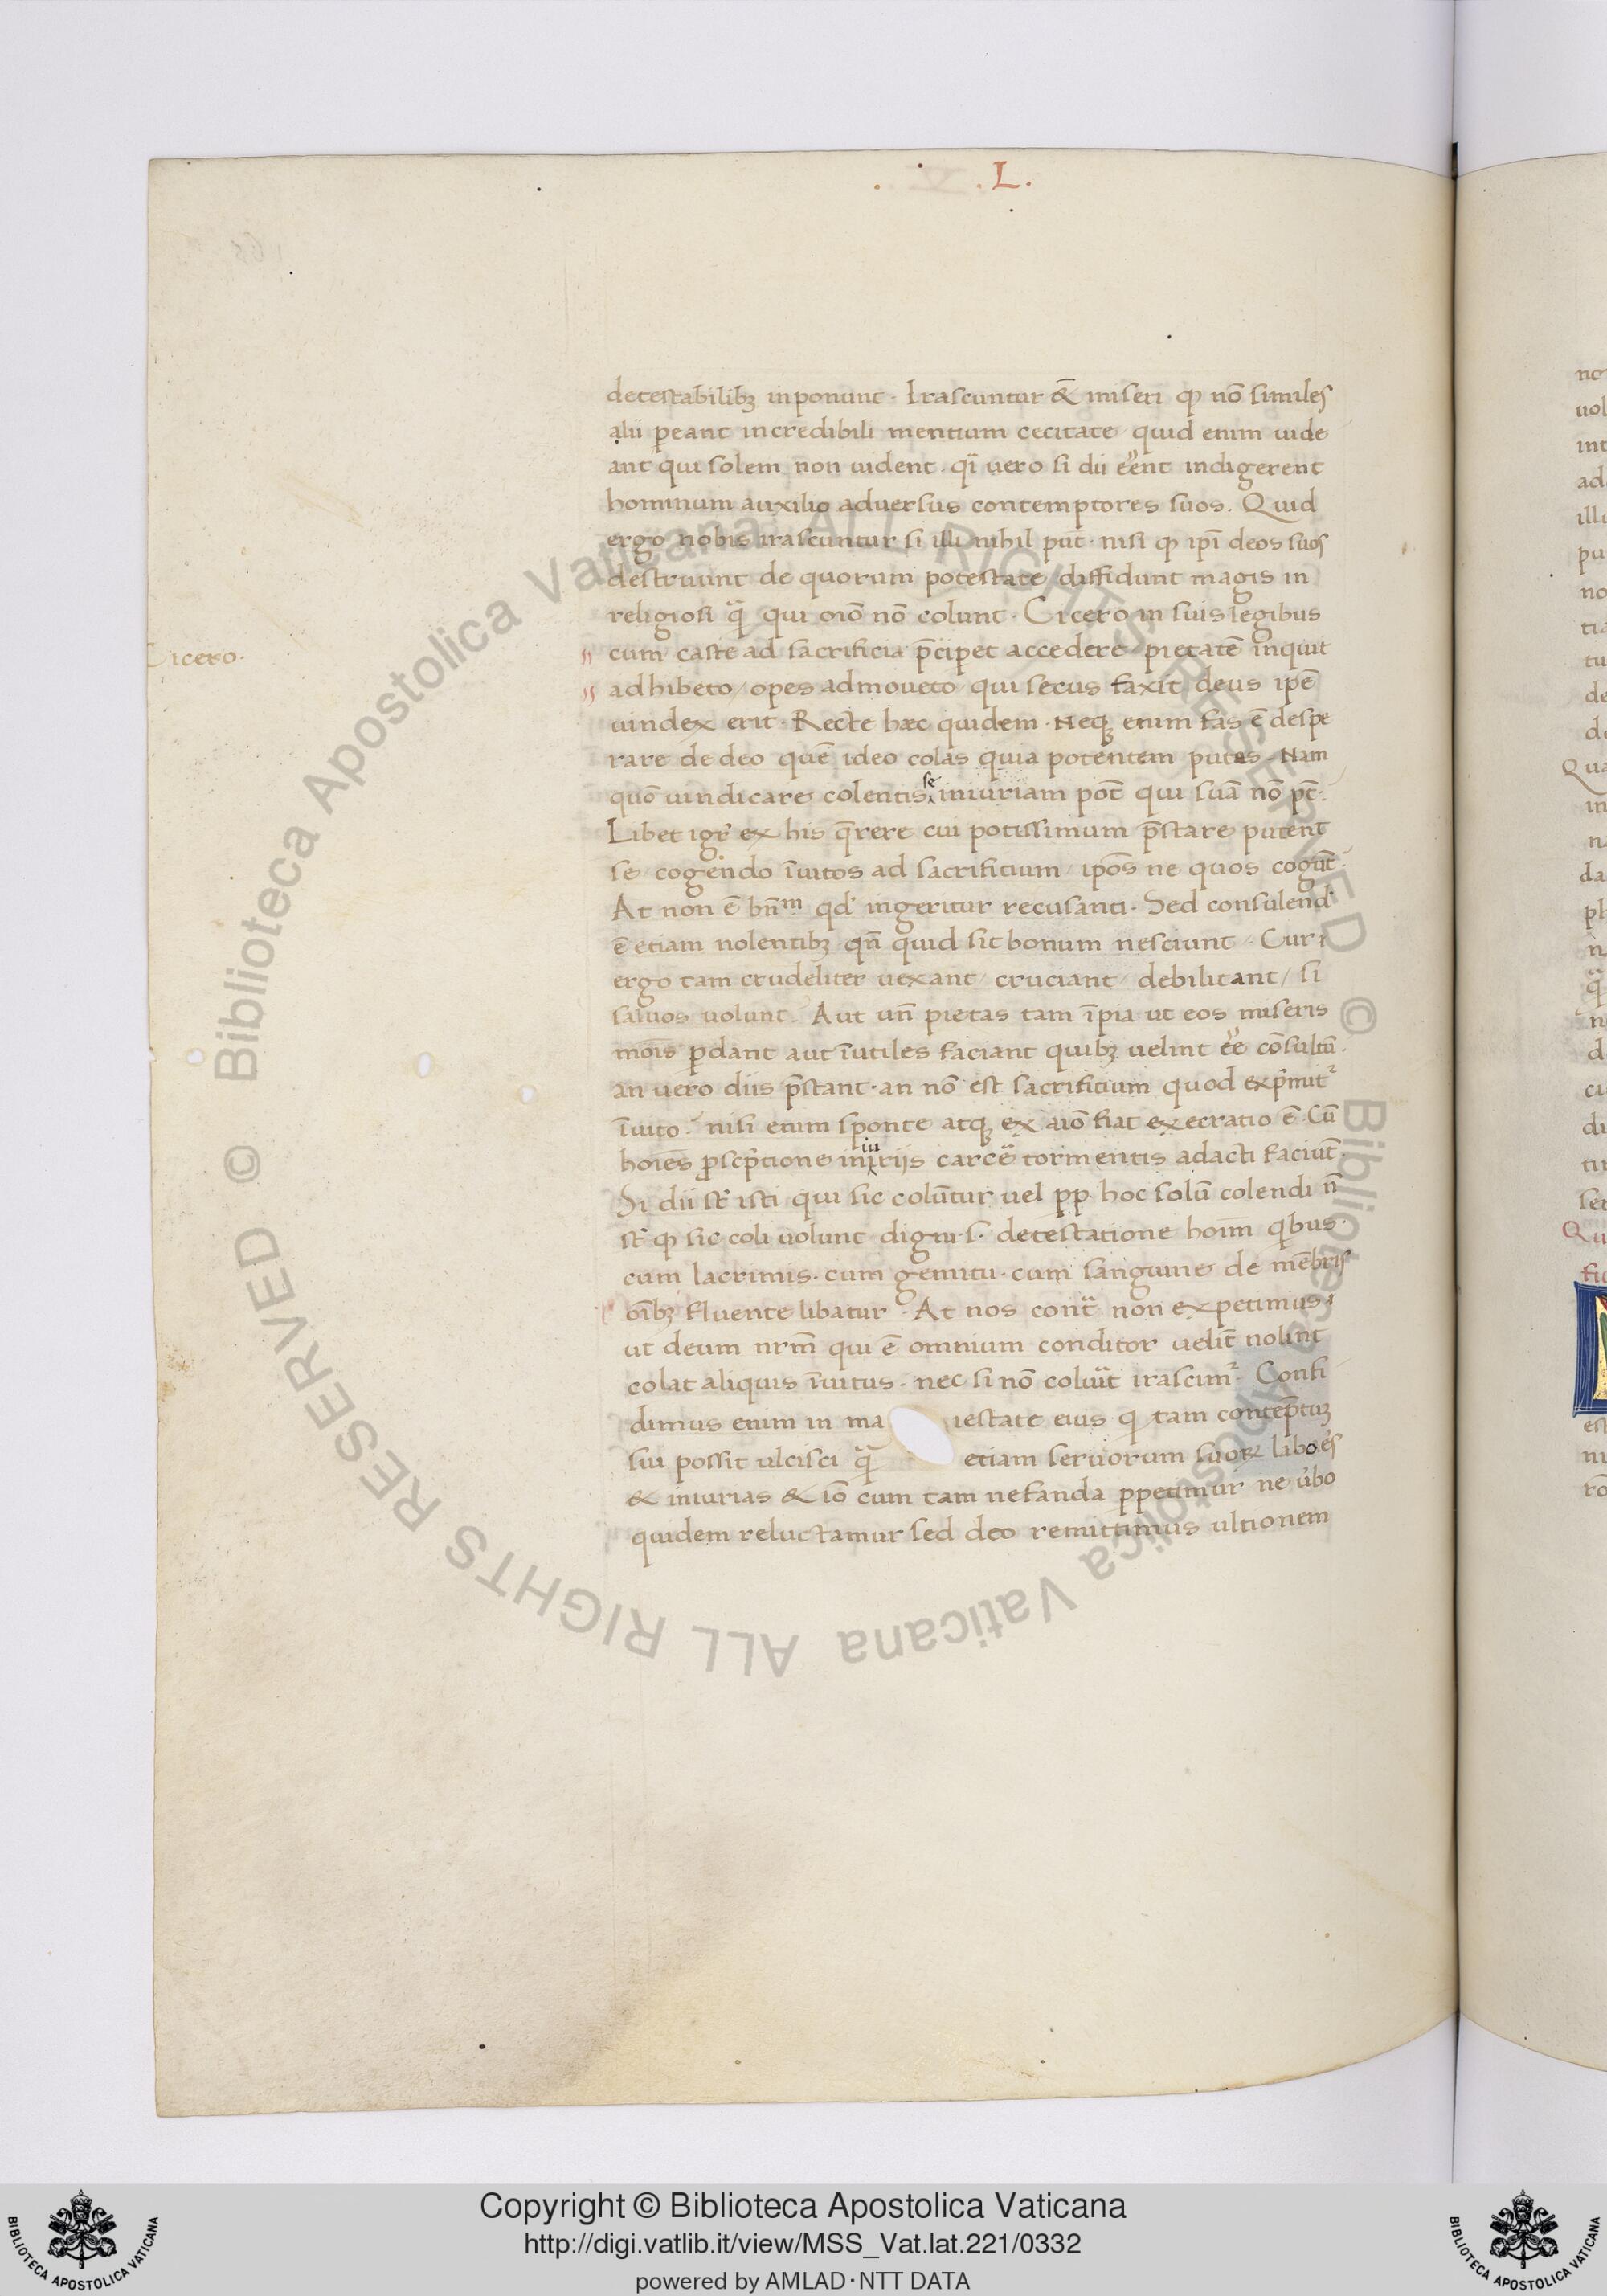 . L.
detestabilibꝫ inponunt · Irascuntur &̄ miseri qꝫ nō similes
alii ꝑeant incredibili mentium cecitate quid enim uide
ant qui solem non uident · qi uero si dii eēnt indigerent
hominum auxilio adversus contemptores suos. Quid
ergo nobis irascuntur si illi nihil pn̄t · nisi qꝫ ipī deos suos
destruunt de quorum potestate diffidunt magis in
religiosi qᷓ qui oīo nō colunt · Cicero in suis legibus
Cicero ·
cum caste ad sacrificia p̄ciperet accedere pietatē inquit
adhibeto / opes admoueto / qui secus faxit deus ipē
uindex erit · Recte hæc quidem · Neqꝫ enim fas ē despe
rare de deo quē ideo colas quia potentem putas · Nam
quō uindicare colentis se iniuriam pōt qui suā nō pt̄ ·
Libet igr̄ ex his q̄rere cui potissimum p̄stare putent
se / cogendo īuitos ad sacrificium / ipōs ne quos cogūt ·
At non ē bn̄m qd̓ ingeritur recusanti · Sed consulend̓
ē etiam nolentibꝫ qn̄ quid sit bonum nesciunt · Cur
ergo tam crudeliter uexant / cruciant / debilitant / si
saluos uolunt · Aut un̄ pietas tam īpia ut eos miseris
mōis ꝑdant aut īutiles faciant quibꝫ uelint eē cōsultū ·
an uero diis p̄stant · an nō est sacrificium quod expͥmitᷣ
īuito · nisi enim sponte atqꝫ ex aīo fiat execratio ē · Cū
hoīes ꝓscpͥtione iniuriis carceᷓ tormentis adacti faciūt ·
Si dii st̄ isti qui sic colūtur uel pp · hoc solū colendi n̄
st̄ qꝫ sic coli uolunt digni · s · detestatione hoīm qͥbus ·
cum lacrimis · cum gemitu · cum sanguine de mēbris
oībꝫ fluente libatur · At nos contᷓ non expetimus
ut deum nr̄m qui ē omnium conditor uelīt nolint
colat aliquis īuitus · nec si nō coluᷓit irascimᷣ · Confi
dimus enim in ma iestate eius qͥ tam contēptuꝫ
sui possit ulcisci qᷓ etiam seruorum suoꝝ labo.es
& iniurias & iō cum tam nefanda ꝑpetimur ne u̓bo
quidem reluctamur sed deo remittimus ultionem
no
uol
int
ad
illi
pu
no
tia
tu
de
de
Qua
in
na
da
ph
n
qᷓ
n
d
cu
di
tir
sec
Qu
fic
est
ni
rō
© Biblioteca Apostolica Vaticana ALL RIGHTS RESERVED © Biblioteca Apostolica Vaticana ALL RIGHTS RESERVED
Copyright © Biblioteca Apostolica Vaticana
http://digi.vatlib.it/view/MSS_Vat.lat.221/0332
powered by AMLAD·NTT DATA
BIBLIOTECA APOSTOLICA VATICANA
BIBLIOTECA APOSTOLICA VATICANA